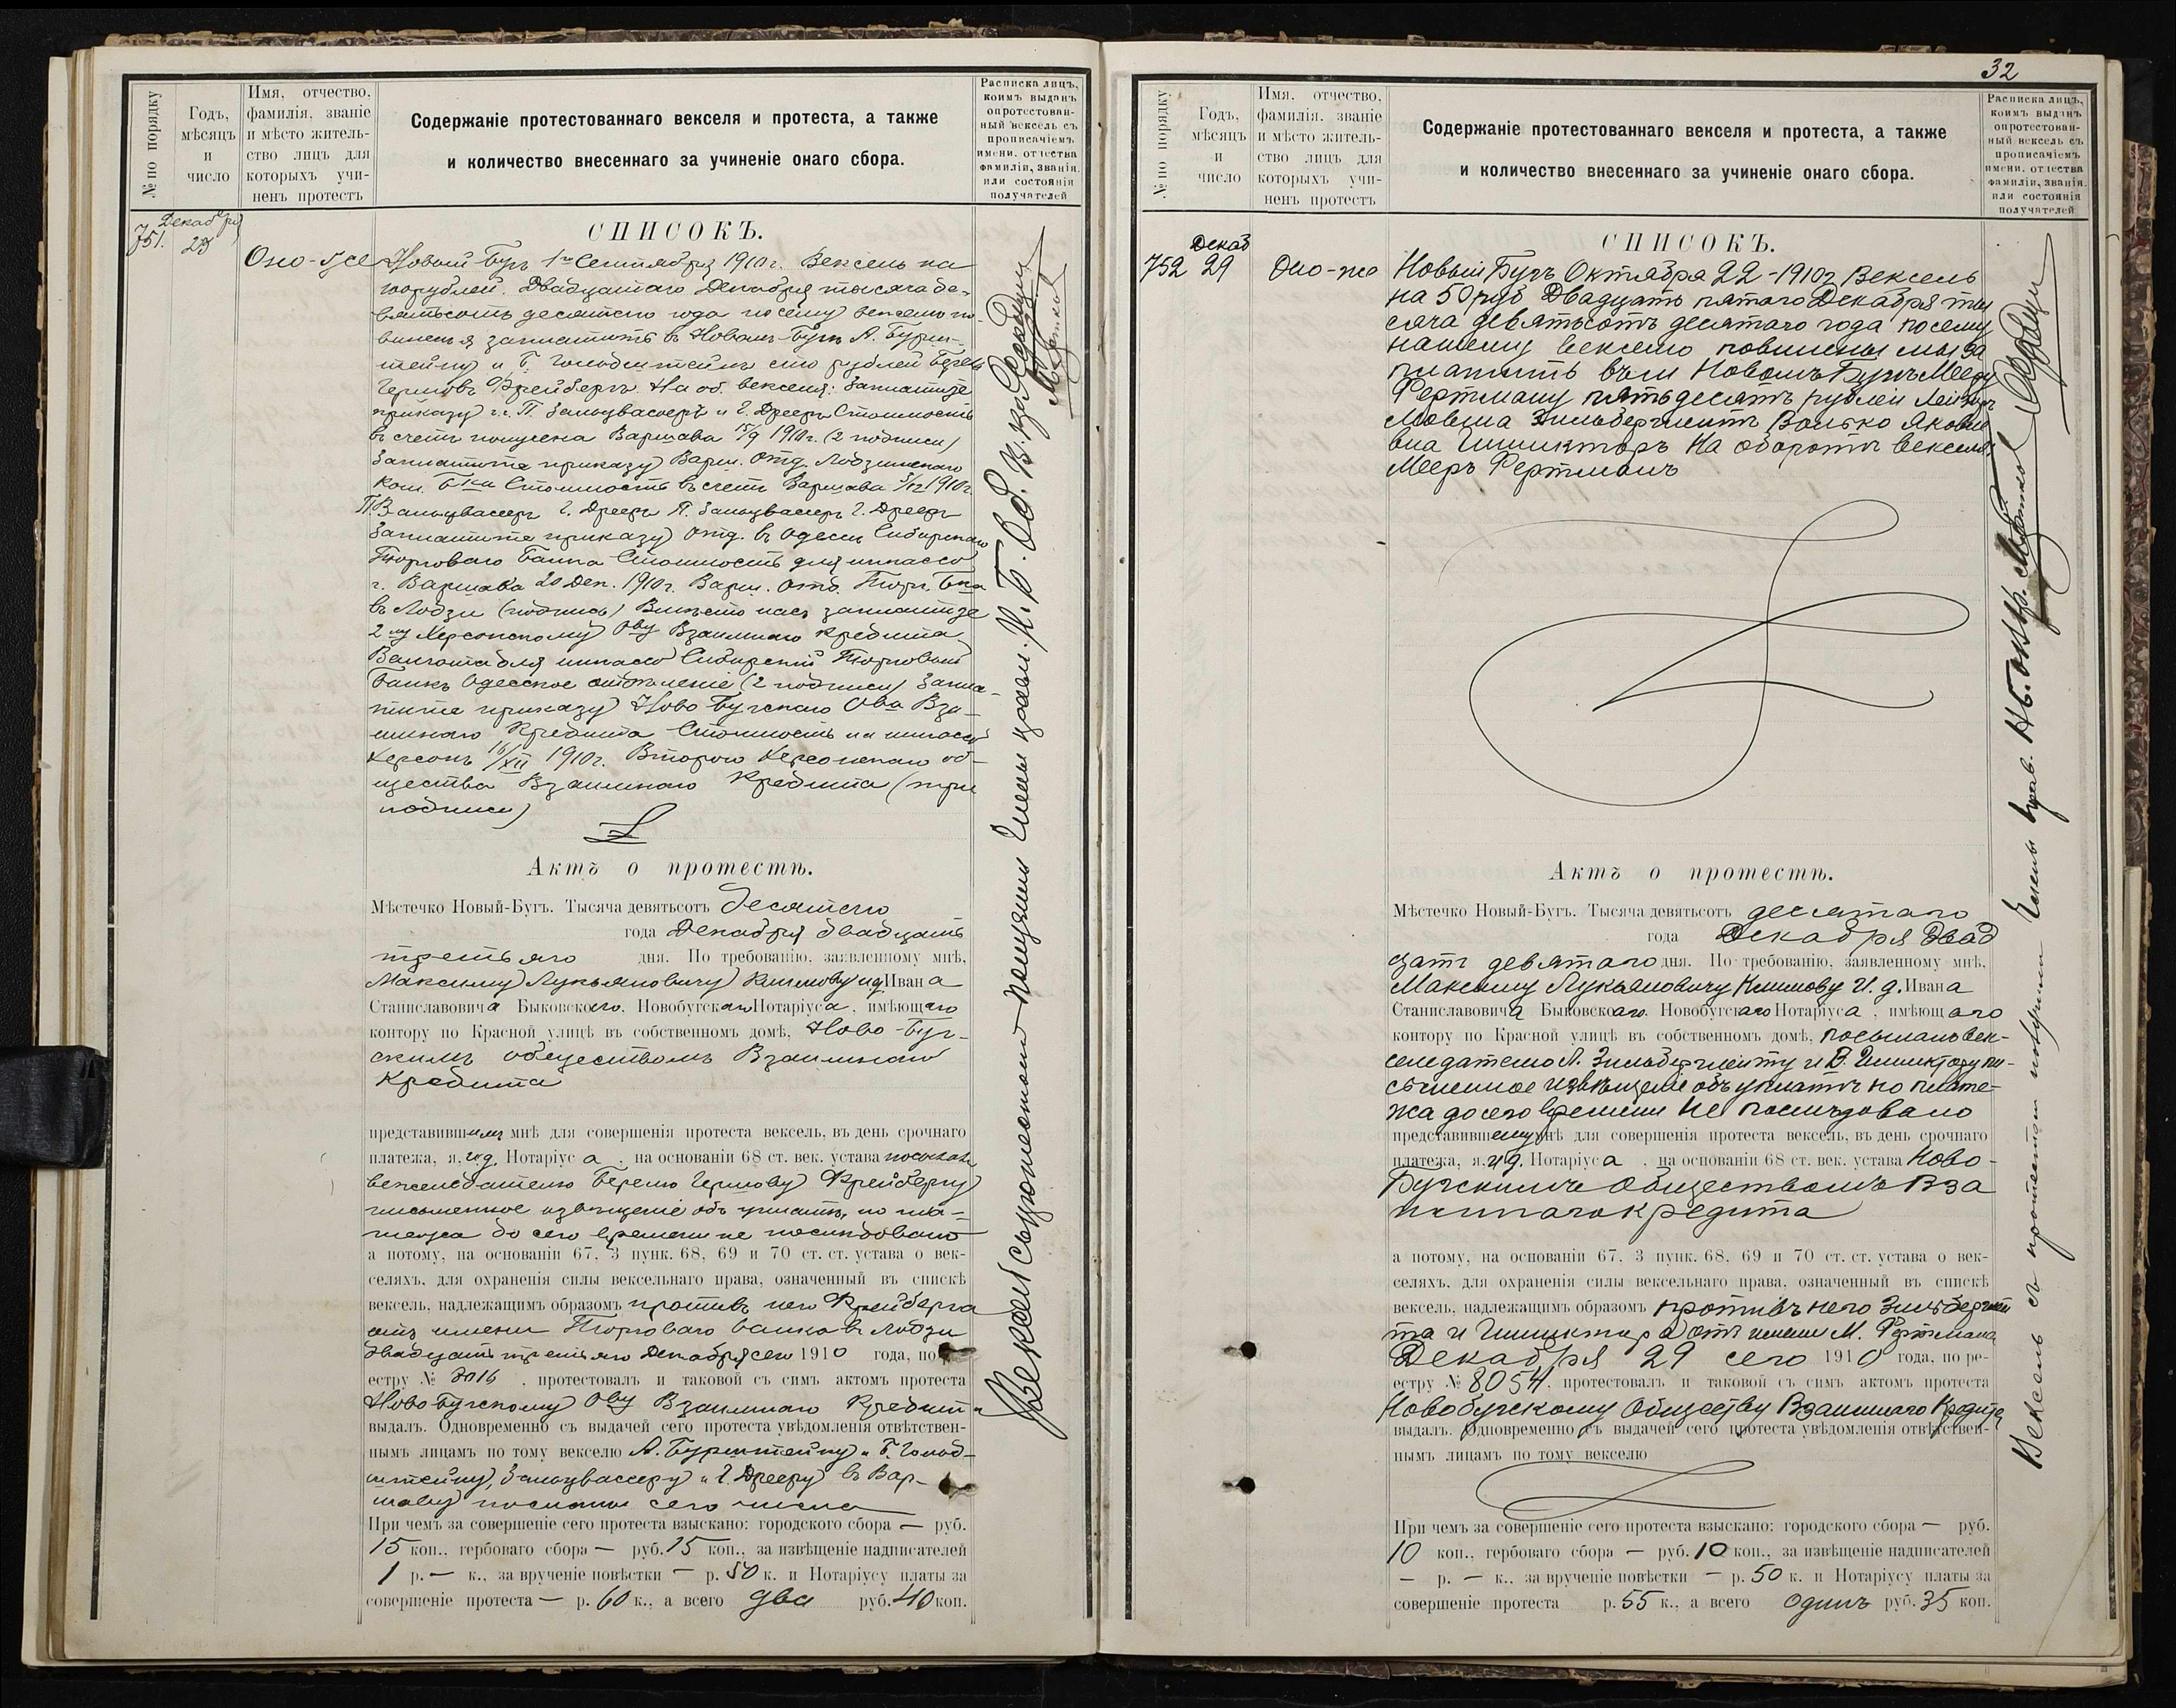 № по порядку
Годъ,
мѣсяцъ
и
число
Имя, отчество,
фамилія, званіе
и мѣсто житель-
ство лицъ для
которыхъ учи-
ненъ протестъ
Содержаніе протестованнаго векселя и протеста, а также
и количество внесеннаго за учиненіе онаго сбора.
Расписка лицъ,
коимъ выданъ
опротестован-
ный вексель съ
прописаніемъ
имени, отчества
фамиліи, званія,
или состоянія
получателей
751. Декабря
23
СПИСОКЪ.
Оно-же
Новый Бугъ 1го Сентября 1910г. Вексель на
100 рублей. Двадцатаго Декабря тысяча де-
вятьсотъ десятаго года по сему векселю по-
виненъ я заплатить въ Новомъ-Бугѣ А. Бурш-
тейну и Б. Гольдштейнъ сто рублей Берель
Гершовъ Фрейбергъ. На об. векселя: Заплатите
приказу г.г. П. Зальцвассеръ и Г. Дрееръ Стоимость
въ счетѣ получена Варшава 15/9 1910г. (2 подписи)
Заплатите приказу Варш. Отд. Лодзинскаго
Ком. Б-ка Стоимость въ счетъ Варшава 3/12 1910г.
П. Зальцвассеръ Г. Дрееръ П. Зальцвассеръ Г. Дрееръ
Заплатите приказу Отд. въ Одессѣ Сибирскаго
Торговаго Банка Стоимость для инкассо
г. Варшава 20 Дек. 1910г. Варш. Отд. Торг. Б-ка
въ Лодзи (подпись) Вмѣсто насъ заплатите
2му Херсонскому О-ву Взаимнаго кредита
Валюта для инкассо Сибирскій Торговый
банкъ Одесское отдѣленіе (2 подписи) Запла-
тите приказу Ново Бугскаго О-ва Вза-
имнаго Кредита Стоимость на инкассо
Херсонъ 16/XII 1910г. Второго Херсонскаго об-
щества Взаимнаго Кредита (три
подписи)
Актъ о протестѣ.
Мѣстечко Новый-Бугъ. Тысяча девятьсотъ десятаго
года Декабря двадцать
третьяго дня. По требованію, заявленному мнѣ,
Максиму Лукьяновичу Климову и.д. Ивана
Станиславовича Быковскаго, Новобугскаго Нотаріуса, имѣющаго
контору по Красной улицѣ въ собственномъ домѣ, Ново-Буг-
скимъ обществомъ Взаимнаго
Кредита
представившимъ мнѣ для совершенія протеста вексель, въ день срочнаго
платежа, я, и.д. Нотаріуса, на основаніи 68 ст. век. устава посылалъ
векселедателю Берелю Гершову Фрейбергу
письменное извѣщеніе объ уплатѣ, но пла-
тежа до сего времени не послѣдовало
а потому, на основаніи 67, 3 пунк. 68, 69 и 70 ст. ст. устава о век-
селяхъ, для охраненія силы вексельнаго права, означенный въ спискѣ
вексель, надлежащимъ образомъ противъ него Фрейберга
отъ имени Торговаго банка въ Лодзи
двадцать третьяго Декабря сего 1910 года, по ре-
естру № 8016, протестовалъ и таковой съ симъ актомъ протеста
Новобугскому О-ву Взаимнаго Кредита
выдалъ. Одновременно съ выдачей сего протеста увѣдомленія отвѣтствен-
нымъ лицамъ по тому векселю А. Бурштейну и Б. Гольд-
штейну, Зальцвассеру и Г. Дрееру въ Вар-
шаву посланы сего числа
При чемъ за совершеніе сего протеста взыскано: городского сбора — руб.
15 коп., гербоваго сбора — руб. 15 коп., за извѣщеніе надписателей
1 р. — к., за врученіе повѣстки — р. 50 к. и Нотаріусу платы за
совершеніе протеста — р. 60 к., а всего два руб. 40 коп.
Вексель съ протестомъ получили Члены правл. Н. Б. Об. Вз.
32
№ по порядку
Годъ,
мѣсяцъ
и
число
Имя, отчество,
фамилія, званіе
и мѣсто житель-
ство лицъ для
которыхъ учи-
ненъ протестъ
Содержаніе протестованнаго векселя и протеста, а также
и количество внесеннаго за учиненіе онаго сбора.
Расписка лицъ,
коимъ выданъ
опротестован-
ный вексель съ
прописаніемъ
имени, отчества
фамиліи, званія,
или состоянія
получателей
СПИСОКЪ.
Декаб
752 29 Оно-же
Новый Бугъ Октября 22-1910г Вексель
на 50 руб Двадцать пятого Декабря ты
сяча девятьсотъ десятаго года по сему
нашему векселю повинны мы за
платить въ м Новомъ Бугѣ Мееру
Фертману пятьдесятъ рублей Лейзоръ
Мовша Зильберглеитъ Волько Яковле
вна Шишкторъ На оборотѣ векселя:
Мееръ Фертманъ
Актъ о протестѣ.
Мѣстечко Новый-Бугъ. Тысяча девятьсотъ десятаго
года Декабря двад
цать девятаго дня. По требованію, заявленному мнѣ,
Максиму Лукьяновичу Климову И. д. Ивана
Станиславовича Быковскаго, Новобугскаго Нотаріуса, имѣющаго
контору по Красной улицѣ въ собственномъ домѣ, посылалъ век-
селедателю Л. Зильберглейту и В. Шишктору пи-
сьменное извѣщеніе объ уплатѣ но плате-
жа до сего времени не послѣдовало
представившему мнѣ для совершенія протеста вексель, въ день срочнаго
платежа, я, и.д. Нотаріуса, на основаніи 68 ст. век. устава Ново-
Бугскимъ Обществомъ Вза
имнаго кредита
а потому, на основаніи 67, 3 пунк. 68, 69 и 70 ст. ст. устава о век-
селяхъ, для охраненія силы вексельнаго права, означенный въ спискѣ
вексель, надлежащимъ образомъ противъ него Зильберглей
та и Шишктора отъ имени М. Фертмана
Декабря 29 сего 1910 года, по ре-
естру № 8054, протестовалъ и таковой съ симъ актомъ протеста
Новобугскому Обществу Взаимнаго Кредита
выдалъ. Одновременно съ выдачей сего протеста увѣдомленія отвѣтствен-
нымъ лицамъ по тому векселю
При чемъ за совершеніе сего протеста взыскано: городского сбора — руб.
10 коп., гербоваго сбора — руб. 10 коп., за извѣщеніе надписателей
— р. — к., за врученіе повѣстки — р. 50 к. и Нотаріусу платы за
совершеніе протеста р. 55 к., а всего одинъ руб. 35 коп.
Вексель съ протестомъ получили Члены прав. Н.Б. ОВКр.